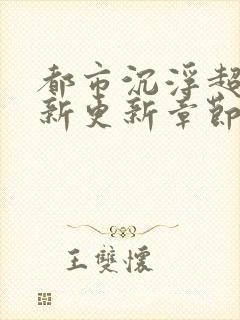 都市沉浮超
新更新章節
王雙懷